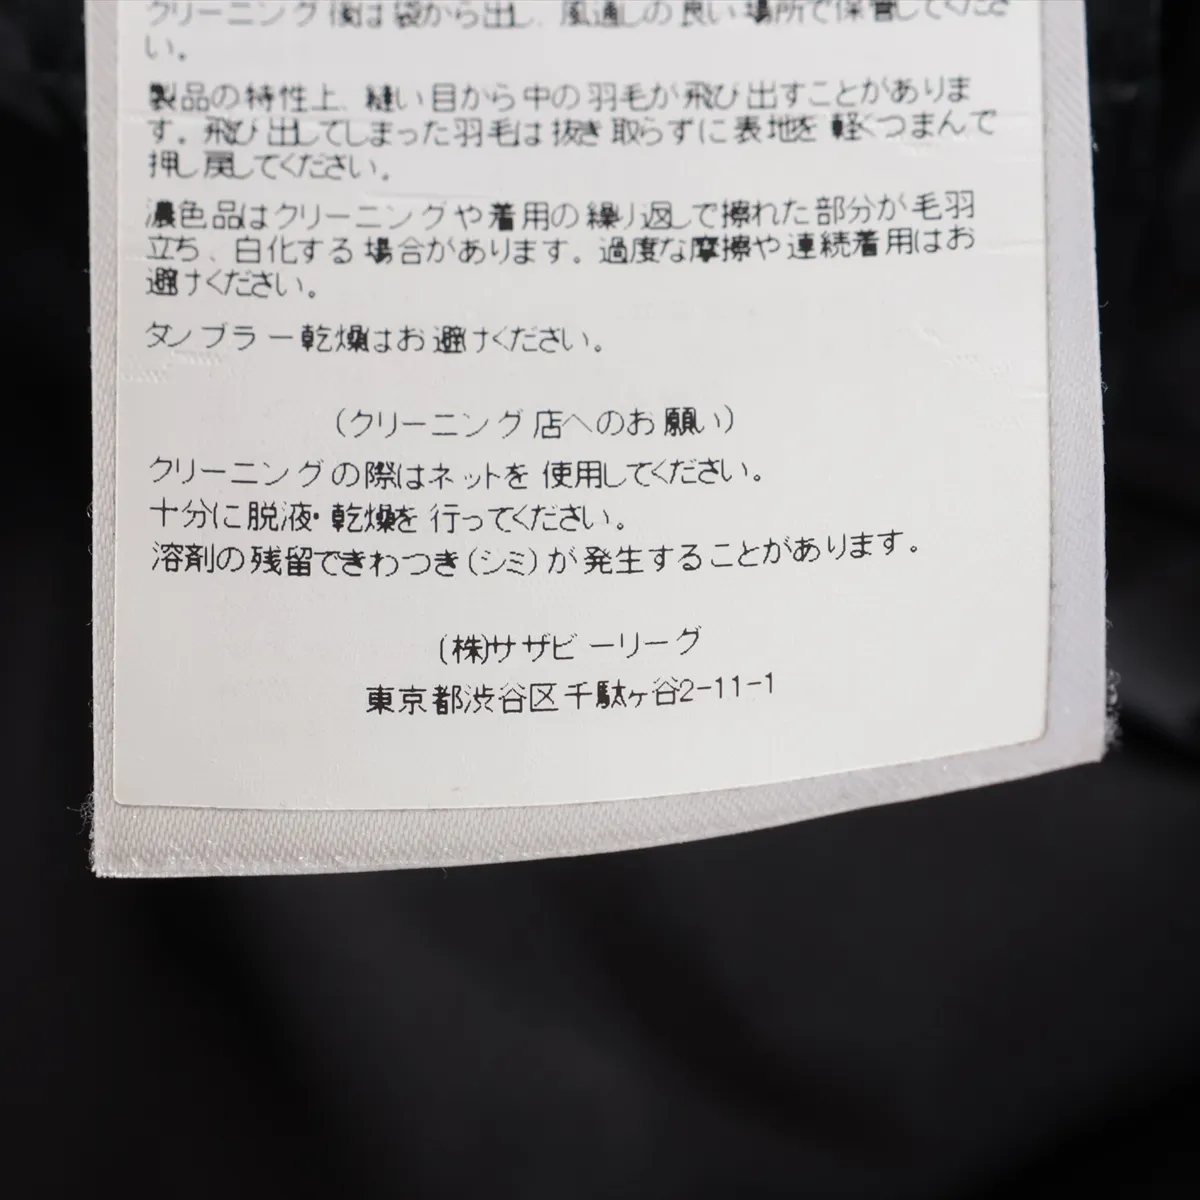 クリーニング後は袋から出し、風通しの良い場所で保管してくださ
い。
製品の特性上、縫い目から中の羽毛が飛び出すことがありま
す。飛び出してしまった羽毛は抜き取らずに表地を軽くつまんで
押し戻してください。
濃色品はクリーニングや着用の繰り返しで擦れた部分が毛羽
立ち、白化する場合があります。過度な摩擦や連続着用はお
避けください。
タンブラー乾燥はお避けください。
(クリーニング店へのお願い)
クリーニングの際はネットを使用してください。
十分に脱液・乾燥を行ってください。
溶剤の残留できわつき(シミ)が発生することがあります。
(株)サザビーリーグ
東京都渋谷区千駄ヶ谷2-11-1